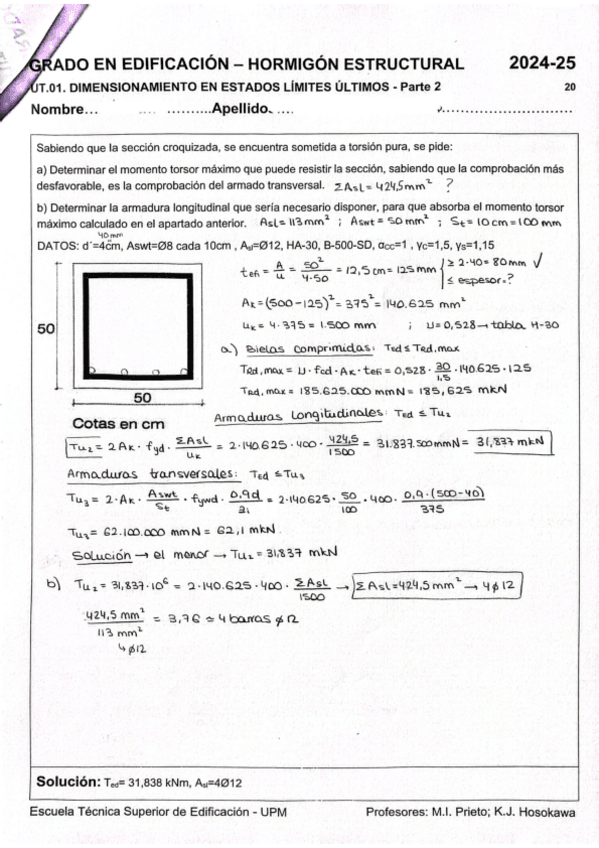 GRADO EN EDIFICACIÓN – HORMIGÓN ESTRUCTURAL 2024-25
UT.01. DIMENSIONAMIENTO EN ESTADOS LÍMITES ÚLTIMOS - Parte 2 20
Nombre... .... ..........Apellido. ....
Sabiendo que la sección croquizada, se encuentra sometida a torsión pura, se pide:
a) Determinar el momento torsor máximo que puede resistir la sección, sabiendo que la comprobación más
desfavorable, es la comprobación del armado transversal. ΣAsl = 424,5 mm² ?
b) Determinar la armadura longitudinal que sería necesario disponer, para que absorba el momento torsor
máximo calculado en el apartado anterior. Asl = 113 mm² ; Aswt = 50 mm² ; St = 10 cm = 100 mm
40 mm
DATOS: d´=4cm, Aswt=Ø8 cada 10cm , Asl=Ø12, HA-30, B-500-SD, αcc=1 , γc=1,5, γs=1,15
tefi = A/u = 50²/4·50 = 12,5 cm = 125 mm { ≥ 2·40 = 80 mm ✓
≤ espesor = ?
Ak = (500-125)² = 375² = 140.625 mm²
uk = 4·375 = 1.500 mm ; υ = 0,528 → tabla H-30
50
a) Bielas comprimidas: Ted ≤ Trd,max
Trd,max = υ · fcd · Ak · tefi = 0,528 · 30/1,5 · 140.625 · 125
Trd,max = 185.625.000 mmN = 185,625 mkN
50
Cotas en cm
Armaduras Longitudinales: Ted ≤ Tu₂
Tu₂ = 2 Ak · fyd · ΣAsl/uk = 2·140.625 · 400 · 424,5/1500 = 31.837.500 mmN = 31,837 mkN
Armaduras transversales: Ted ≤ Tu₃
Tu₃ = 2 · Ak · Aswt/St · fywd · 0,9d/zi = 2·140625 · 50/100 · 400 · 0,9·(500-40)/375
Tu₃ = 62.100.000 mmN = 62,1 mkN.
Solución → el menor → Tu₂ = 31,837 mkN
b) Tu₂ = 31,837·10⁶ = 2·140.625·400 · ΣAsl/1500 → ΣAsl = 424,5 mm² → 4ø12
424,5 mm²/113 mm² = 3,76 ≃ 4 barras ø12
↳ ø12
Solución: Ted= 31,838 kNm, Asl=4Ø12
Escuela Técnica Superior de Edificación - UPM Profesores: M.I. Prieto; K.J. Hosokawa